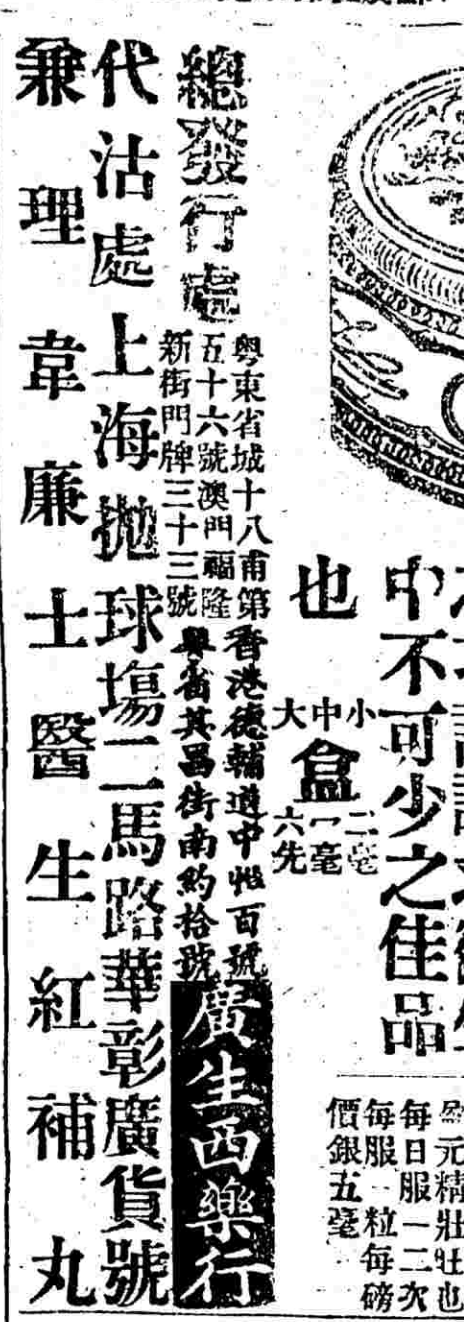 中不可少之佳品
也
小中大
盒
二毫
一毫
六先
元精壯壯也
每日服一二次
每服一粒每磅
價銀五毫
總發行處
粵東省城十八甫第
五十六號澳門福隆
新街門牌三十三號
香港德輔道中百號
粵省其昌街南約拾號
廣生西藥行
代沽處上海拋球塲二馬路華彰廣貨號
兼理韋廉士醫生紅補丸